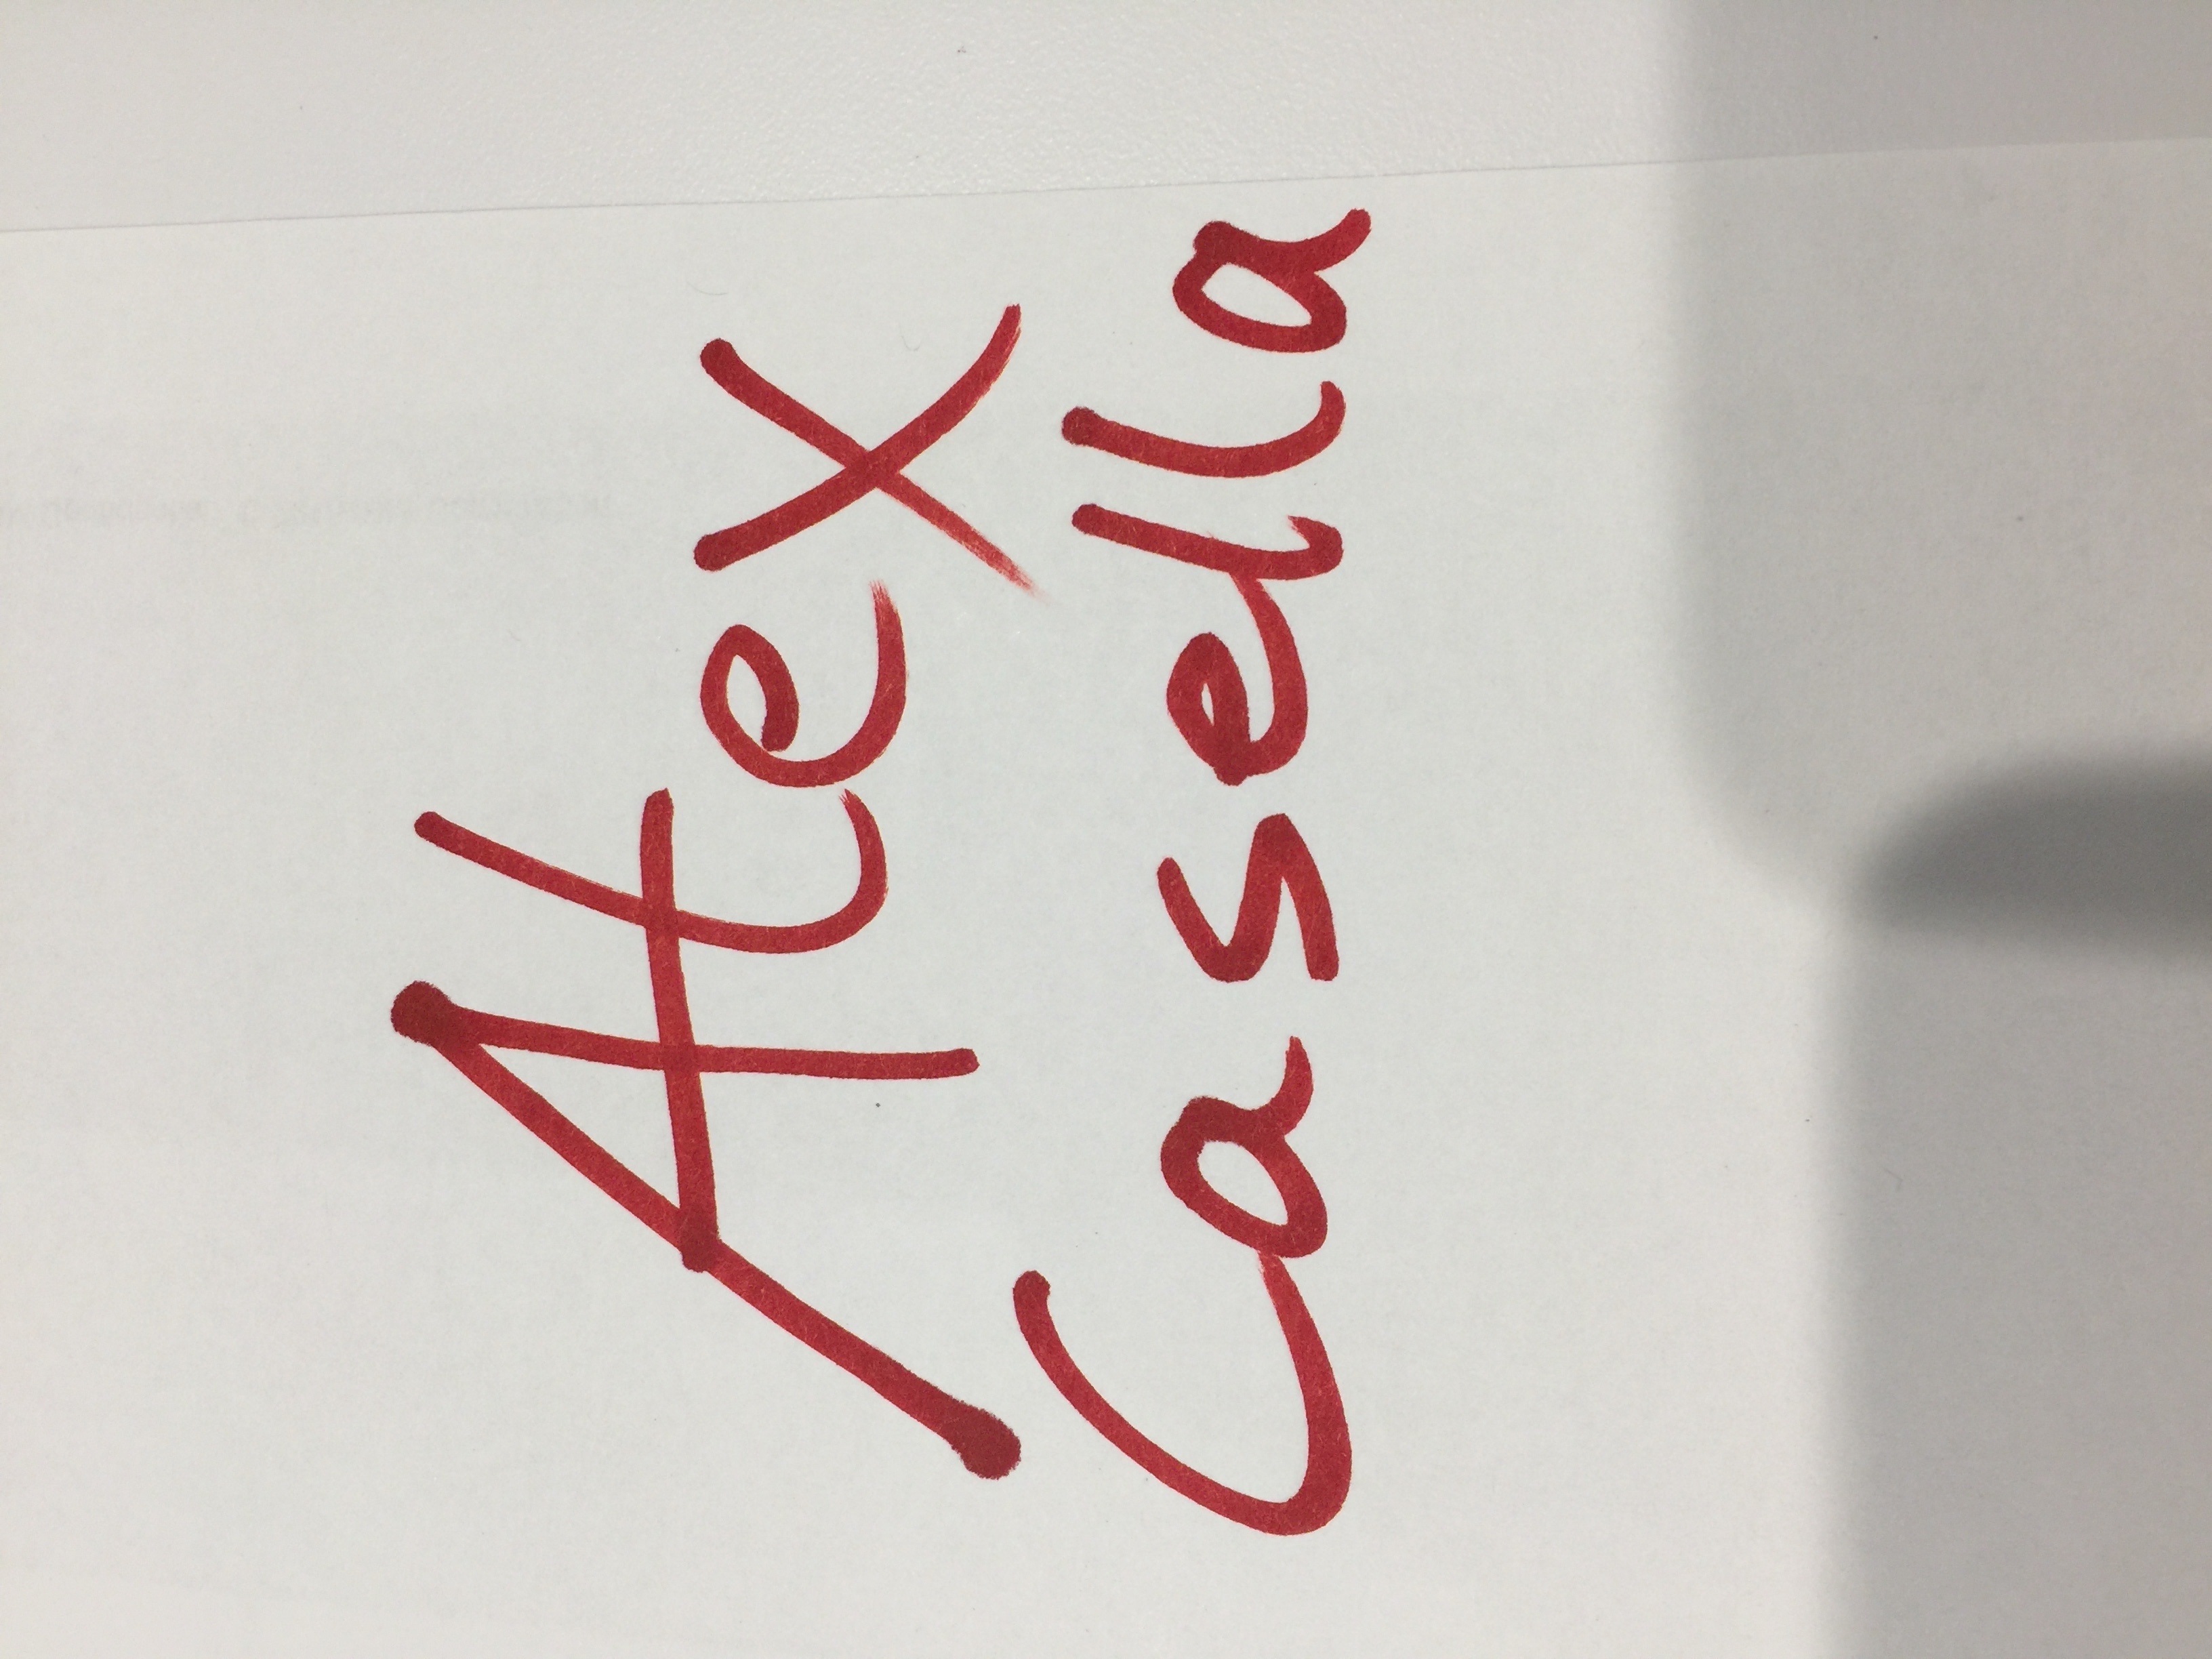 Alex
Casella